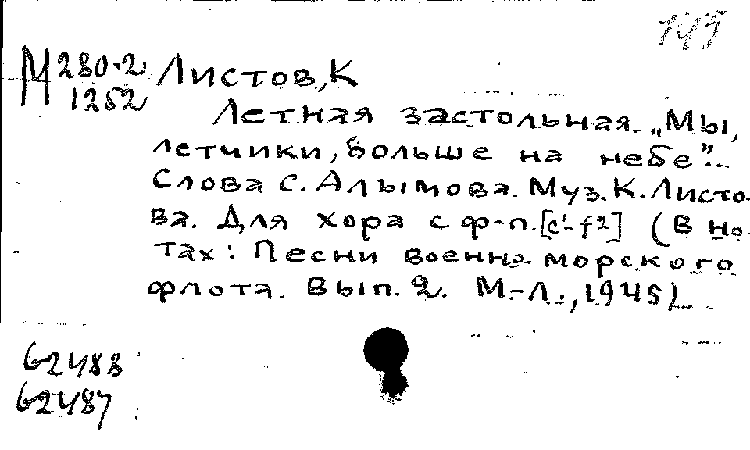 149
М 280-2 Листов, К
1252
Летная застольная. „Мы,
летчики, больше на небе"...
Слова С. Алымова. Муз. К. Листо-
ва. Для хора с ф-п. [c¹-f²] (В но-
тах: Песни военно-морского
флота. Вып. 2. М.-Л., 1945)
62488
62487